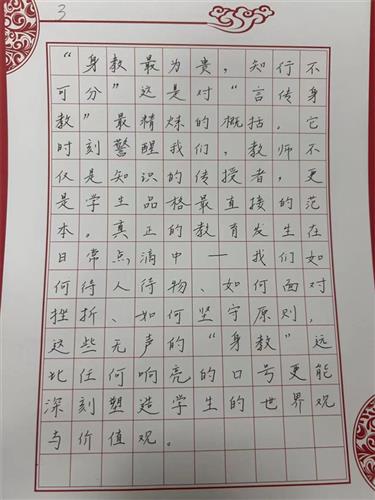 3
“身教最为贵，知行不
可分”这是对“言传身
教”最精炼的概括。它
时刻警醒我们，教师不
仅是知识的传授者，更
是学生品格最直接的范
本。真正的教育发生在
日常点滴中——我们如
何待人待物、如何面对
挫折、如何坚守原则，
这些无声的“身教”远
比任何响亮的口号更能
深刻塑造学生的世界观
与价值观。